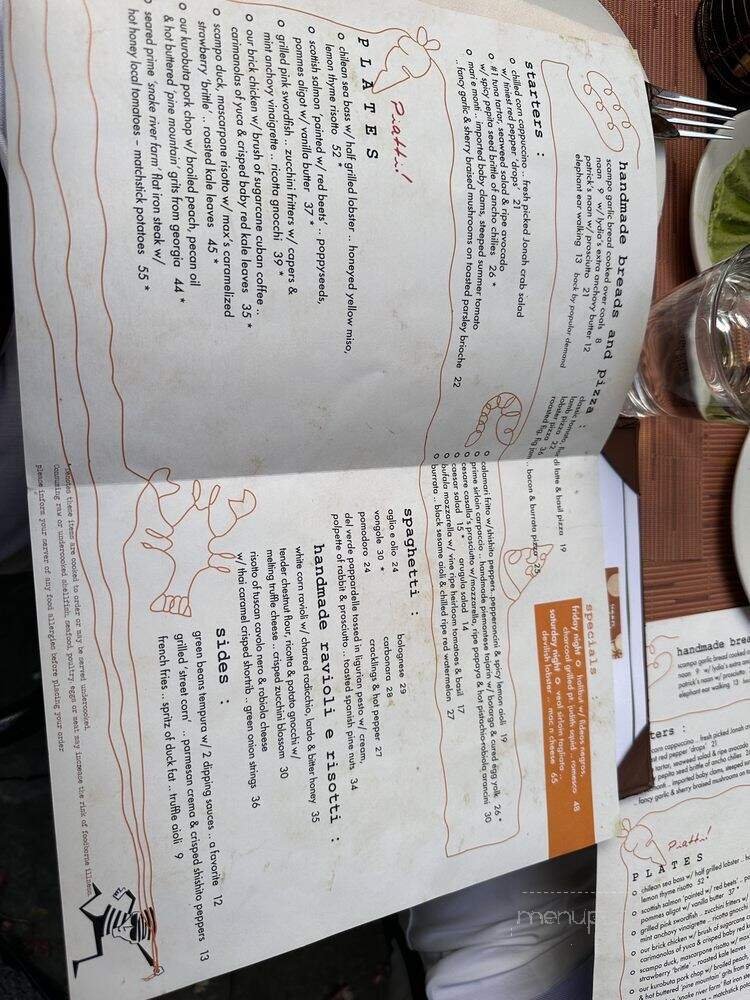 handmade breads and pizza :
scampo garlic bread cooked over coals 8
naan 9 w/ lydia's extra anchovy butter 12
patrick's naan w/ prosciutto 21
elephant ear walking 13 back by popular demand
classic tomato,
di latte & basil pizza 19
lobster pizza
bacon & burrata pizza 25
starters :
chilled corn cappuccino .. fresh picked Jonah crab salad
w/ finiest red pepper 'drops' 21
#1 tuna tartar, seaweed salad & ripe avocado
w/ spicy pepita seed brittle of ancho chilies 26 *
mari e monti .. imported baby clams, steeped summer tomato
.. fancy garlic & sherry braised mushrooms on toasted parsley brioche 22
calamari fritto w/shishito peppers, pepperoncini & spicy lemon aioli 19
prime sirloin carpaccio .. handmade piemontese tajarin w/ botarga & cured egg yolk 26 *
cesare casella's prosciutto w/mozzarella, ripe papaya & hot pistachio-robiola arancini 30
caesar salad 15 * arugula salad 14
bufala mozzarella w/ vine ripe heirloom tomatoes & basil 17
burrata .. black sesame aioli & chilled ripe red watermelon 27
specials
friday night halibut w/ fideos negros,
charcoal grilled pt. judith squid .. romesco 48
saturday night veal sirloin tagliata ..
devilish lobster .. mac n cheese 65
Piatti!
PLATES
chilean sea bass w/ half grilled lobster .. honeyed yellow miso,
lemon thyme risotto 52 *
scottish salmon 'painted w/ red beets' .. poppyseeds,
pommes aligot w/ vanilla butter 37 *
grilled pink swordfish .. zucchini fritters w/ capers &
mint anchovy vinaigrette .. ricotta gnocchi 39 *
our brick chicken w/ brush of sugarcane cuban coffee ..
carimanolas of yuca & crisped baby red kale leaves 35 *
scampo duck, mascarpone risotto w/ max's caramelized
strawberry 'brittle' .. roasted kale leaves 45 *
our kurobuta pork chop w/ broiled peach, pecan oil
& hot buttered 'pine mountain' grits from georgia 44 *
seared prime 'snake river farm' flat iron steak w/
hot honey local tomatoes – matchstick potatoes 55 *
spaghetti :
aglio e olio 24
bolognese 29
vongole 30 *
carbonara 28
pomodoro 24
cracklings & hot pepper 27
del verde pappardelle tossed in ligurian pesto w/ cream,
polpette of rabbit & prosciutto .. toasted spanish pine nuts 34
handmade ravioli e risotti :
white corn ravioli w/ charred radicchio, lardo & bitter honey 35
tender chestnut flour, ricotta & potato gnocchi w/
melting truffle cheese .. crisped zucchini blossom 30
risotto of tuscan cavolo nero & robiola cheese
w/ thai caramel crisped shortrib .. green onion strings 36
sides :
green beans tempura w/ 2 dipping sauces .. a favorite 12
grilled 'street corn' .. parmesan crema & crisped shishito peppers 13
french fries .. spritz of duck fat .. truffle aioli 9
these items are cooked to order or may be served undercooked.
Consuming raw or undercooked shellfish, seafood, poultry, eggs or meat may increase the risk of foodborne illness.
please inform your server of any food allergies before placing your order